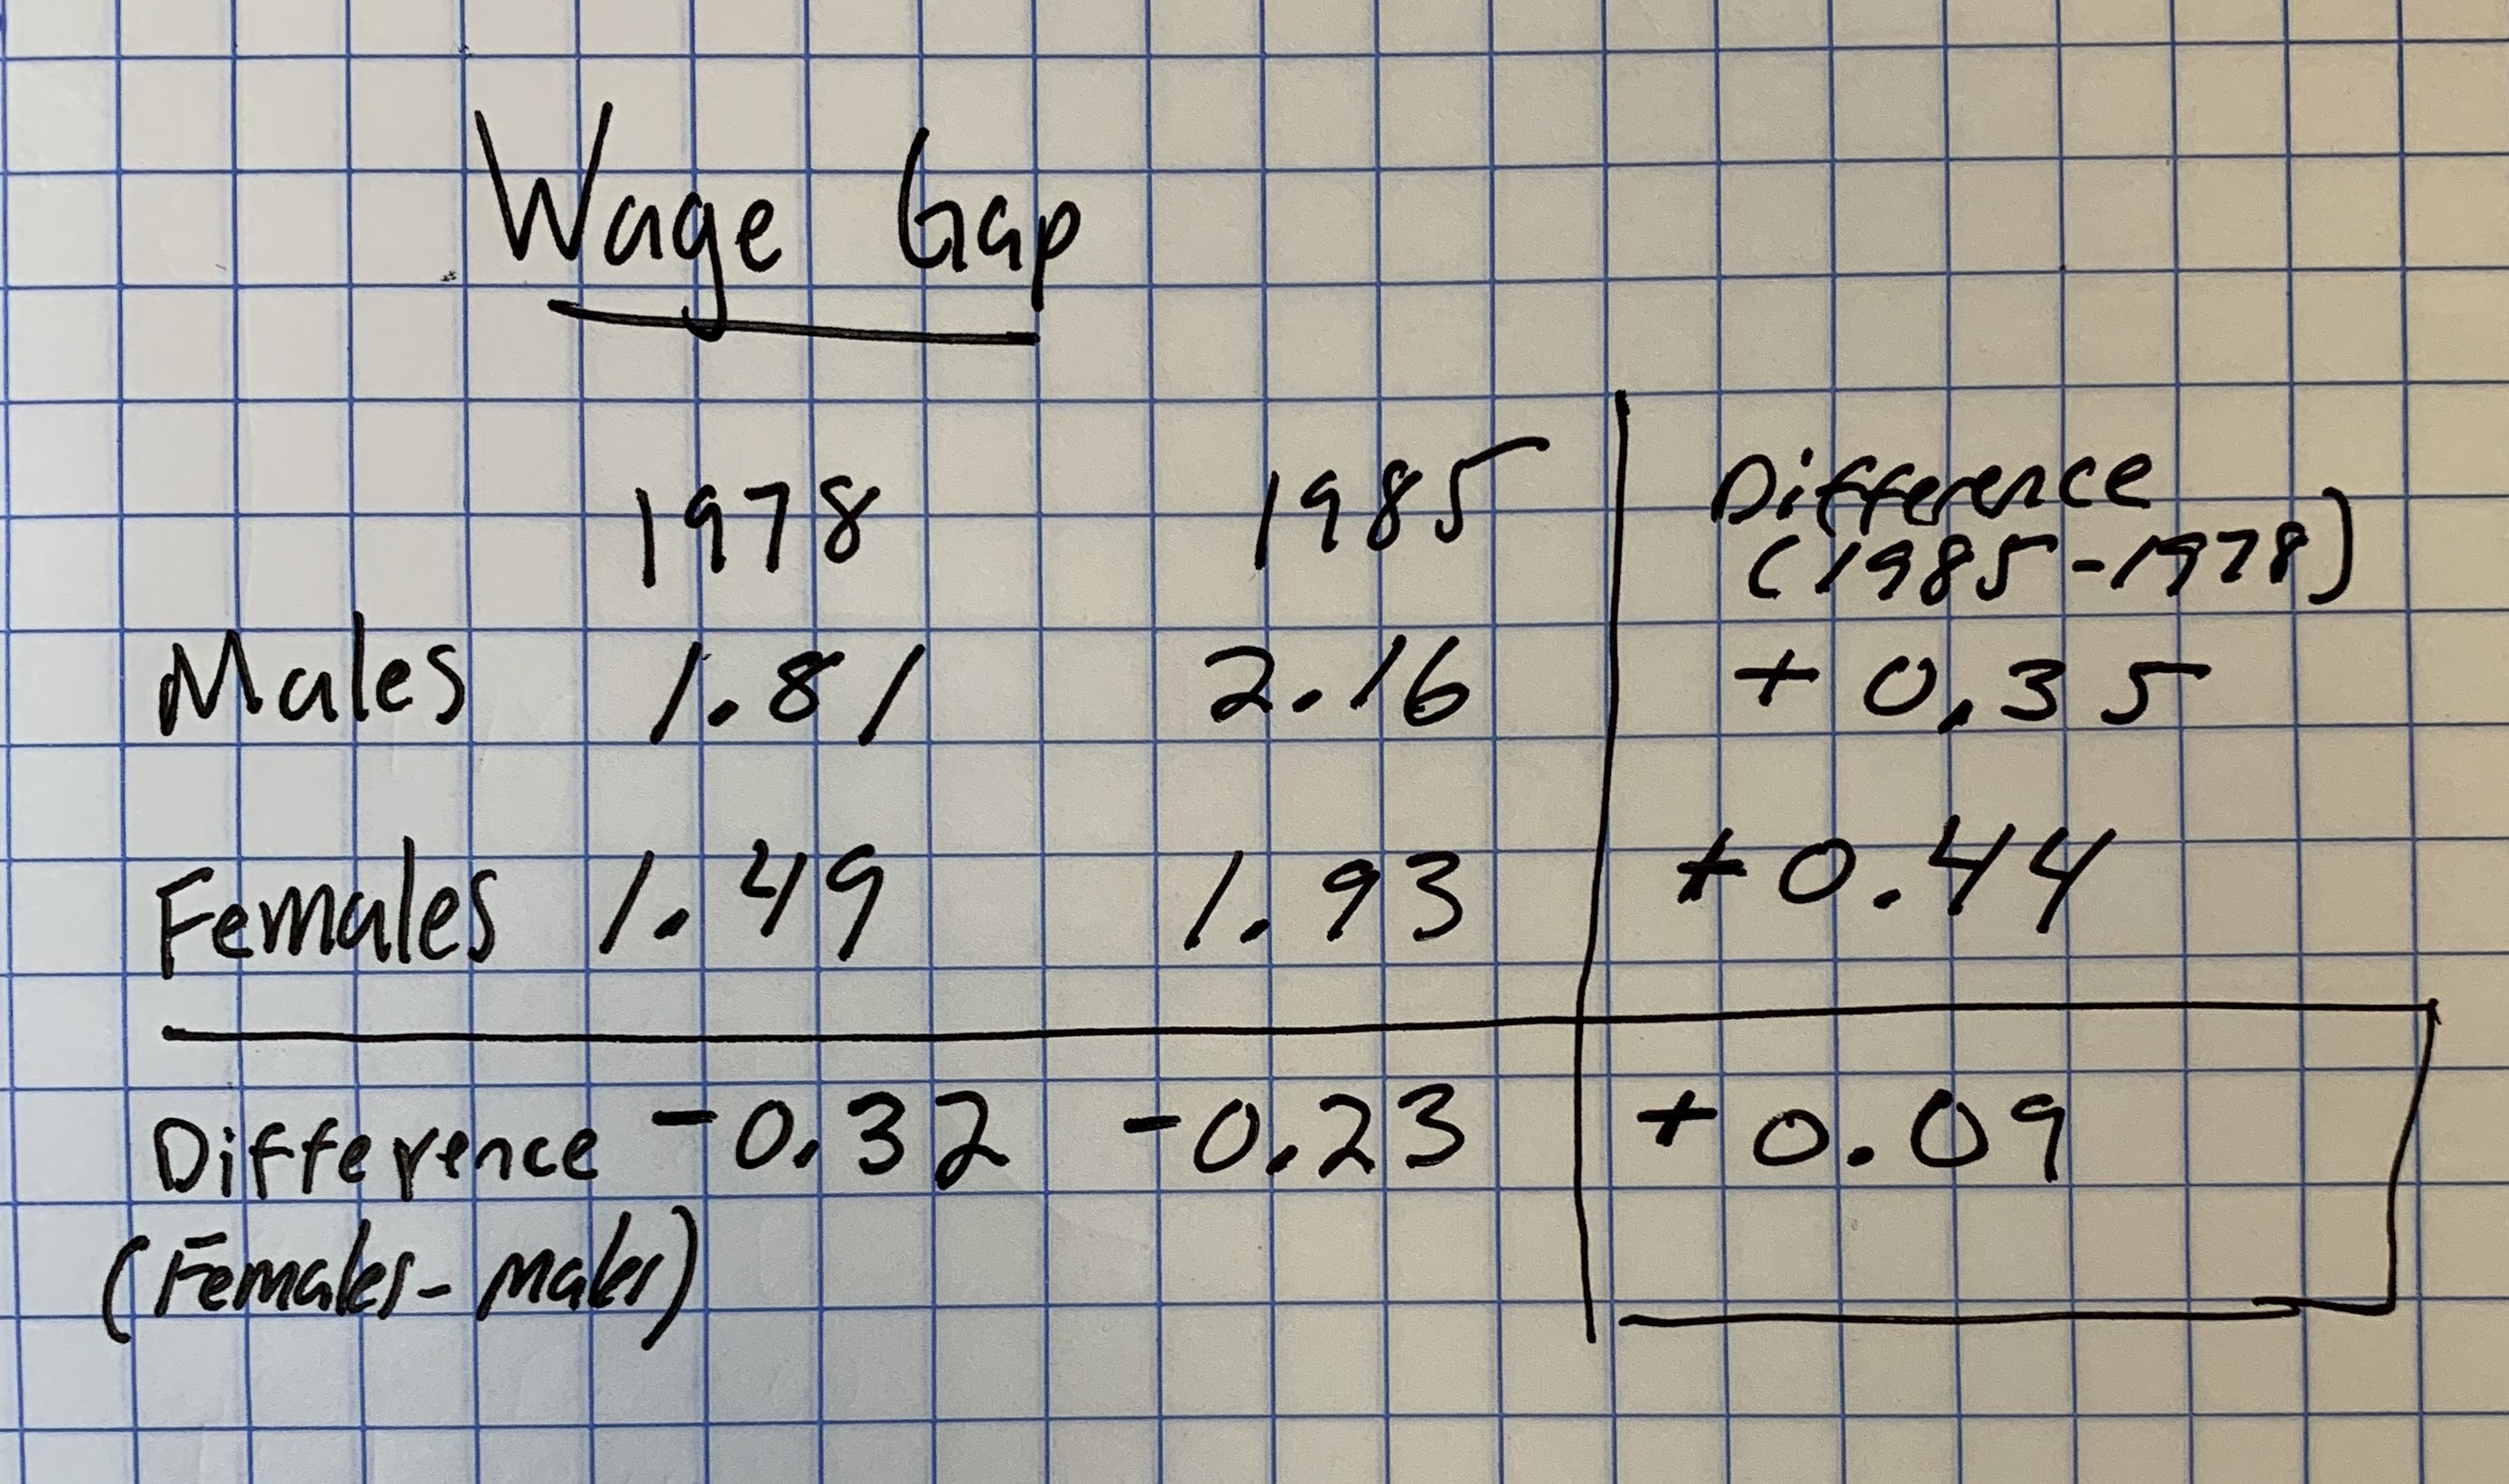 Wage Gap
1978 1985 Difference
(1985-1978)
Males 1.81 2.16 + 0.35
Females 1.49 1.93 + 0.44
Difference -0.32 -0.23 + 0.09
(Females- Males)